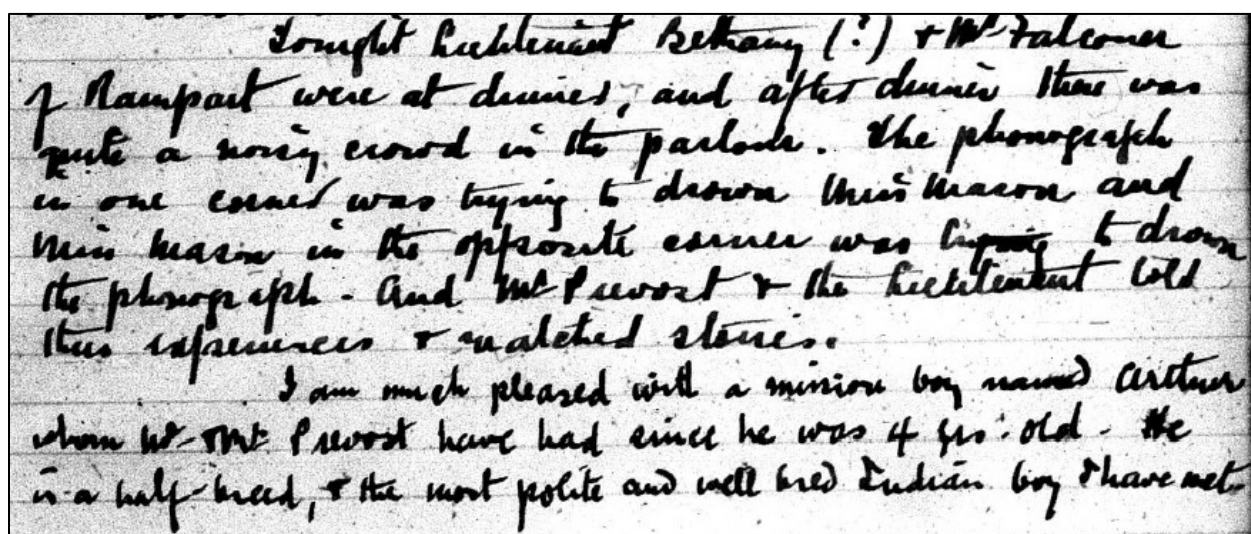 Tonight Lieutenant Bethany (?) & Mr Falconer
of Rampart were at dinner, and after dinner there was
quite a noisy crowd in the parlour. The phonograph
in one corner was trying to drown Miss Mason and
Miss Mason in the opposite corner was trying to drown
the phonograph - And Mr Prevost & the Lieutenant told
their experiences & matched stories.
I am much pleased with a mission boy named Arthur
whom Mr & Mrs Prevost have had since he was 4 yrs. old - He
is a half-breed, & the most polite and well bred Indian boy I have met.